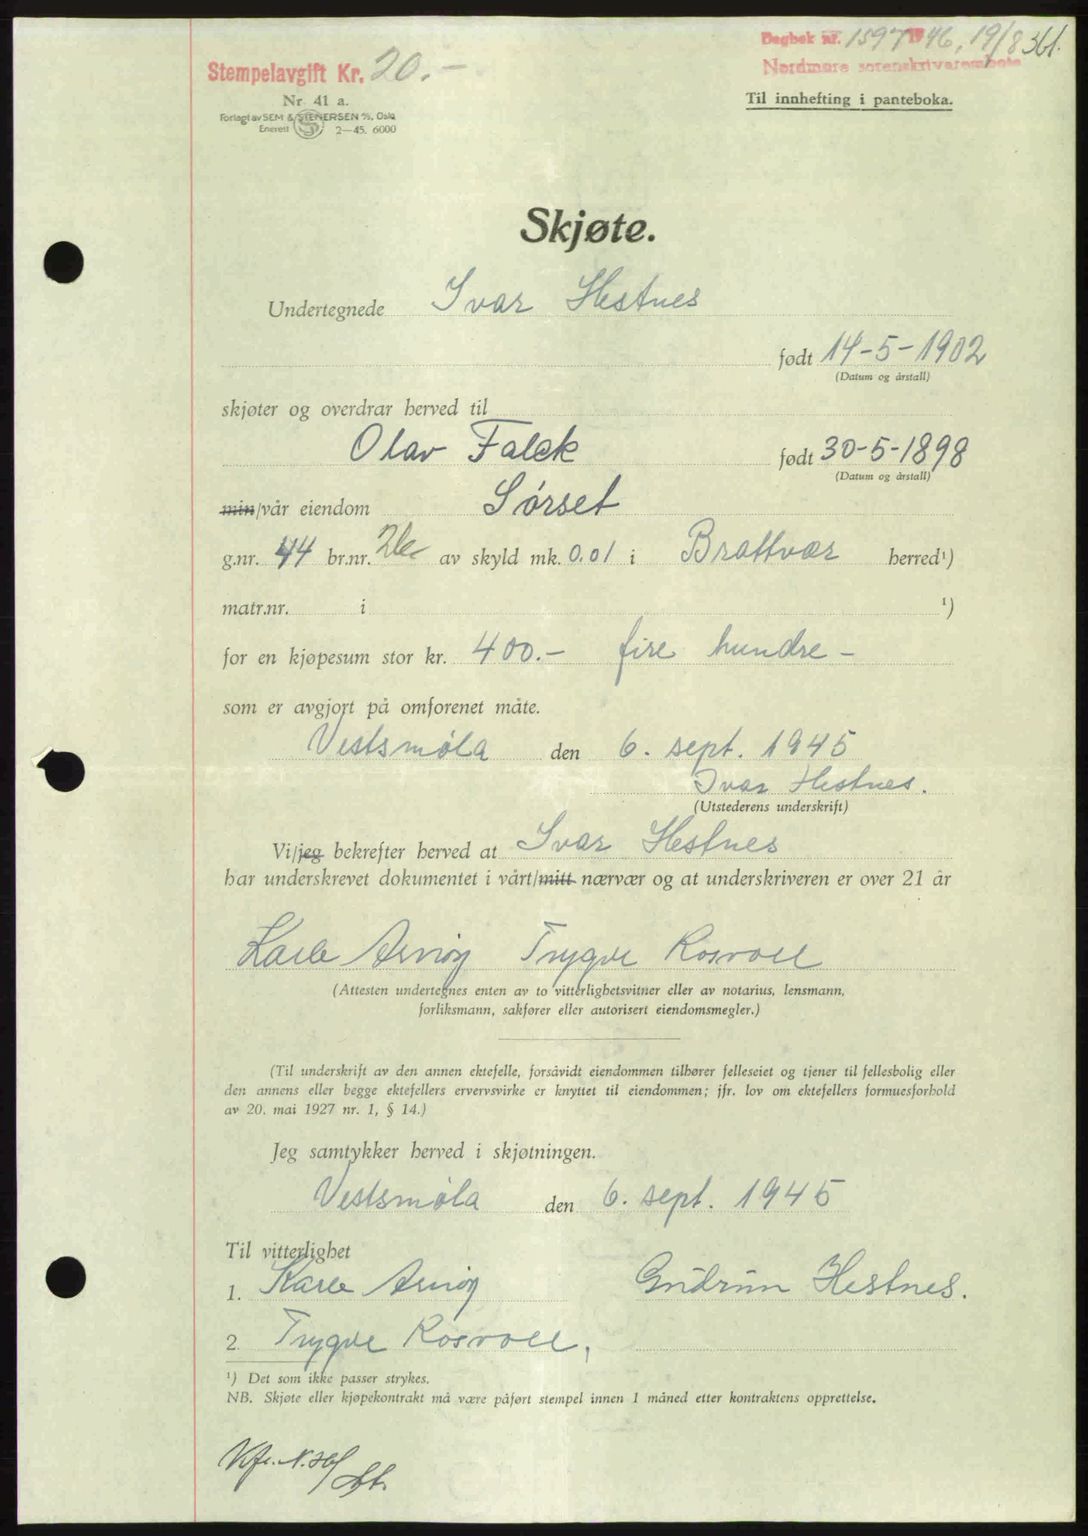 Stempelavgift Kr. 20.-
Dagbok nr. 1597 1946, 19/8 361.
Nordmøre sorenskrivarembete
Nr. 41 a.
Forlagt av SEM & STENERSEN A/S, Oslo
Enerett 2—45. 6000
Til innhefting i panteboka.
Skjøte.
Undertegnede Ivar Hestnes
født 14-5-1902
(Datum og årstall)
skjøter og overdrar herved til
Olav Falck født 30-5-1898
(Datum og årstall)
min/vår eiendom Sørset
g.nr. 44 br.nr. av skyld mk. 0.01 i Brattvær herred¹)
matr.nr. i ¹)
for en kjøpesum stor kr. 400.- fire hundre -
som er avgjort på omforenet måte.
Vestsmøla den 6. sept. 1945
Ivar Hestnes.
(Utstederens underskrift)
Vi/jeg bekrefter herved at Ivar Hestnes
har underskrevet dokumentet i vårt/mitt nærvær og at underskriveren er over 21 år
Kare Arnøy Trygve Rosvoll
(Attesten undertegnes enten av to vitterlighetsvitner eller av notarius, lensmann,
forliksmann, sakfører eller autorisert eiendomsmegler.)
(Til underskrift av den annen ektefelle, forsåvidt eiendommen tilhører felleseiet og tjener til fellesbolig eller
den annens eller begge ektefellers ervervsvirke er knyttet til eiendommen; jfr. lov om ektefellers formuesforhold
av 20. mai 1927 nr. 1, § 14.)
Jeg samtykker herved i skjøtningen.
Vestsmøla den 6. sept. 1945
Til vitterlighet
1. Kare Arnøy Gudrun Hestnes.
2. Trygve Rosvoll,
¹) Det som ikke passer strykes.
NB. Skjøte eller kjøpekontrakt må være påført stempel innen 1 måned etter kontraktens opprettelse.